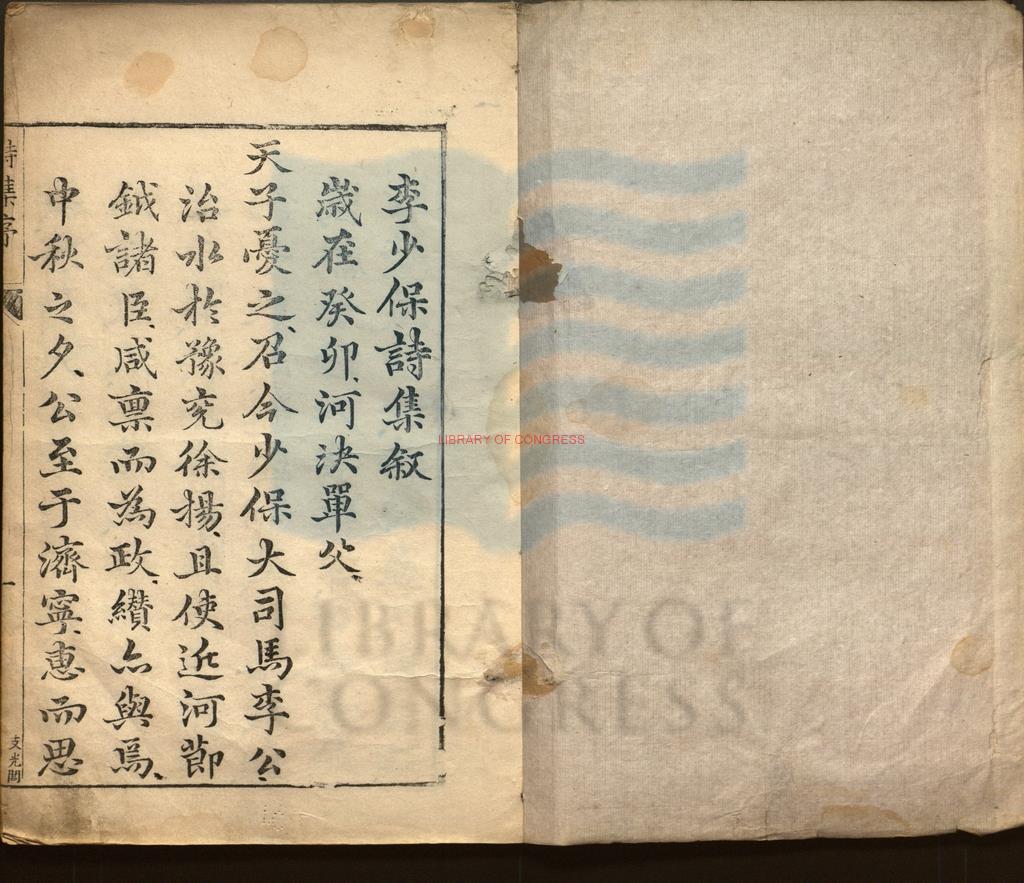 李少保詩集叙
歳在癸卯、河決單父、
天子憂之、召今少保大司馬李公
治水於豫兖徐揚、且使近河節
鉞諸臣、咸禀而為政、纘亦與焉、
中秋之夕、公至于濟寧、惠而思
詩集序
一
LIBRARY OF CONGRESS
LIBRARY OF
CONGRESS